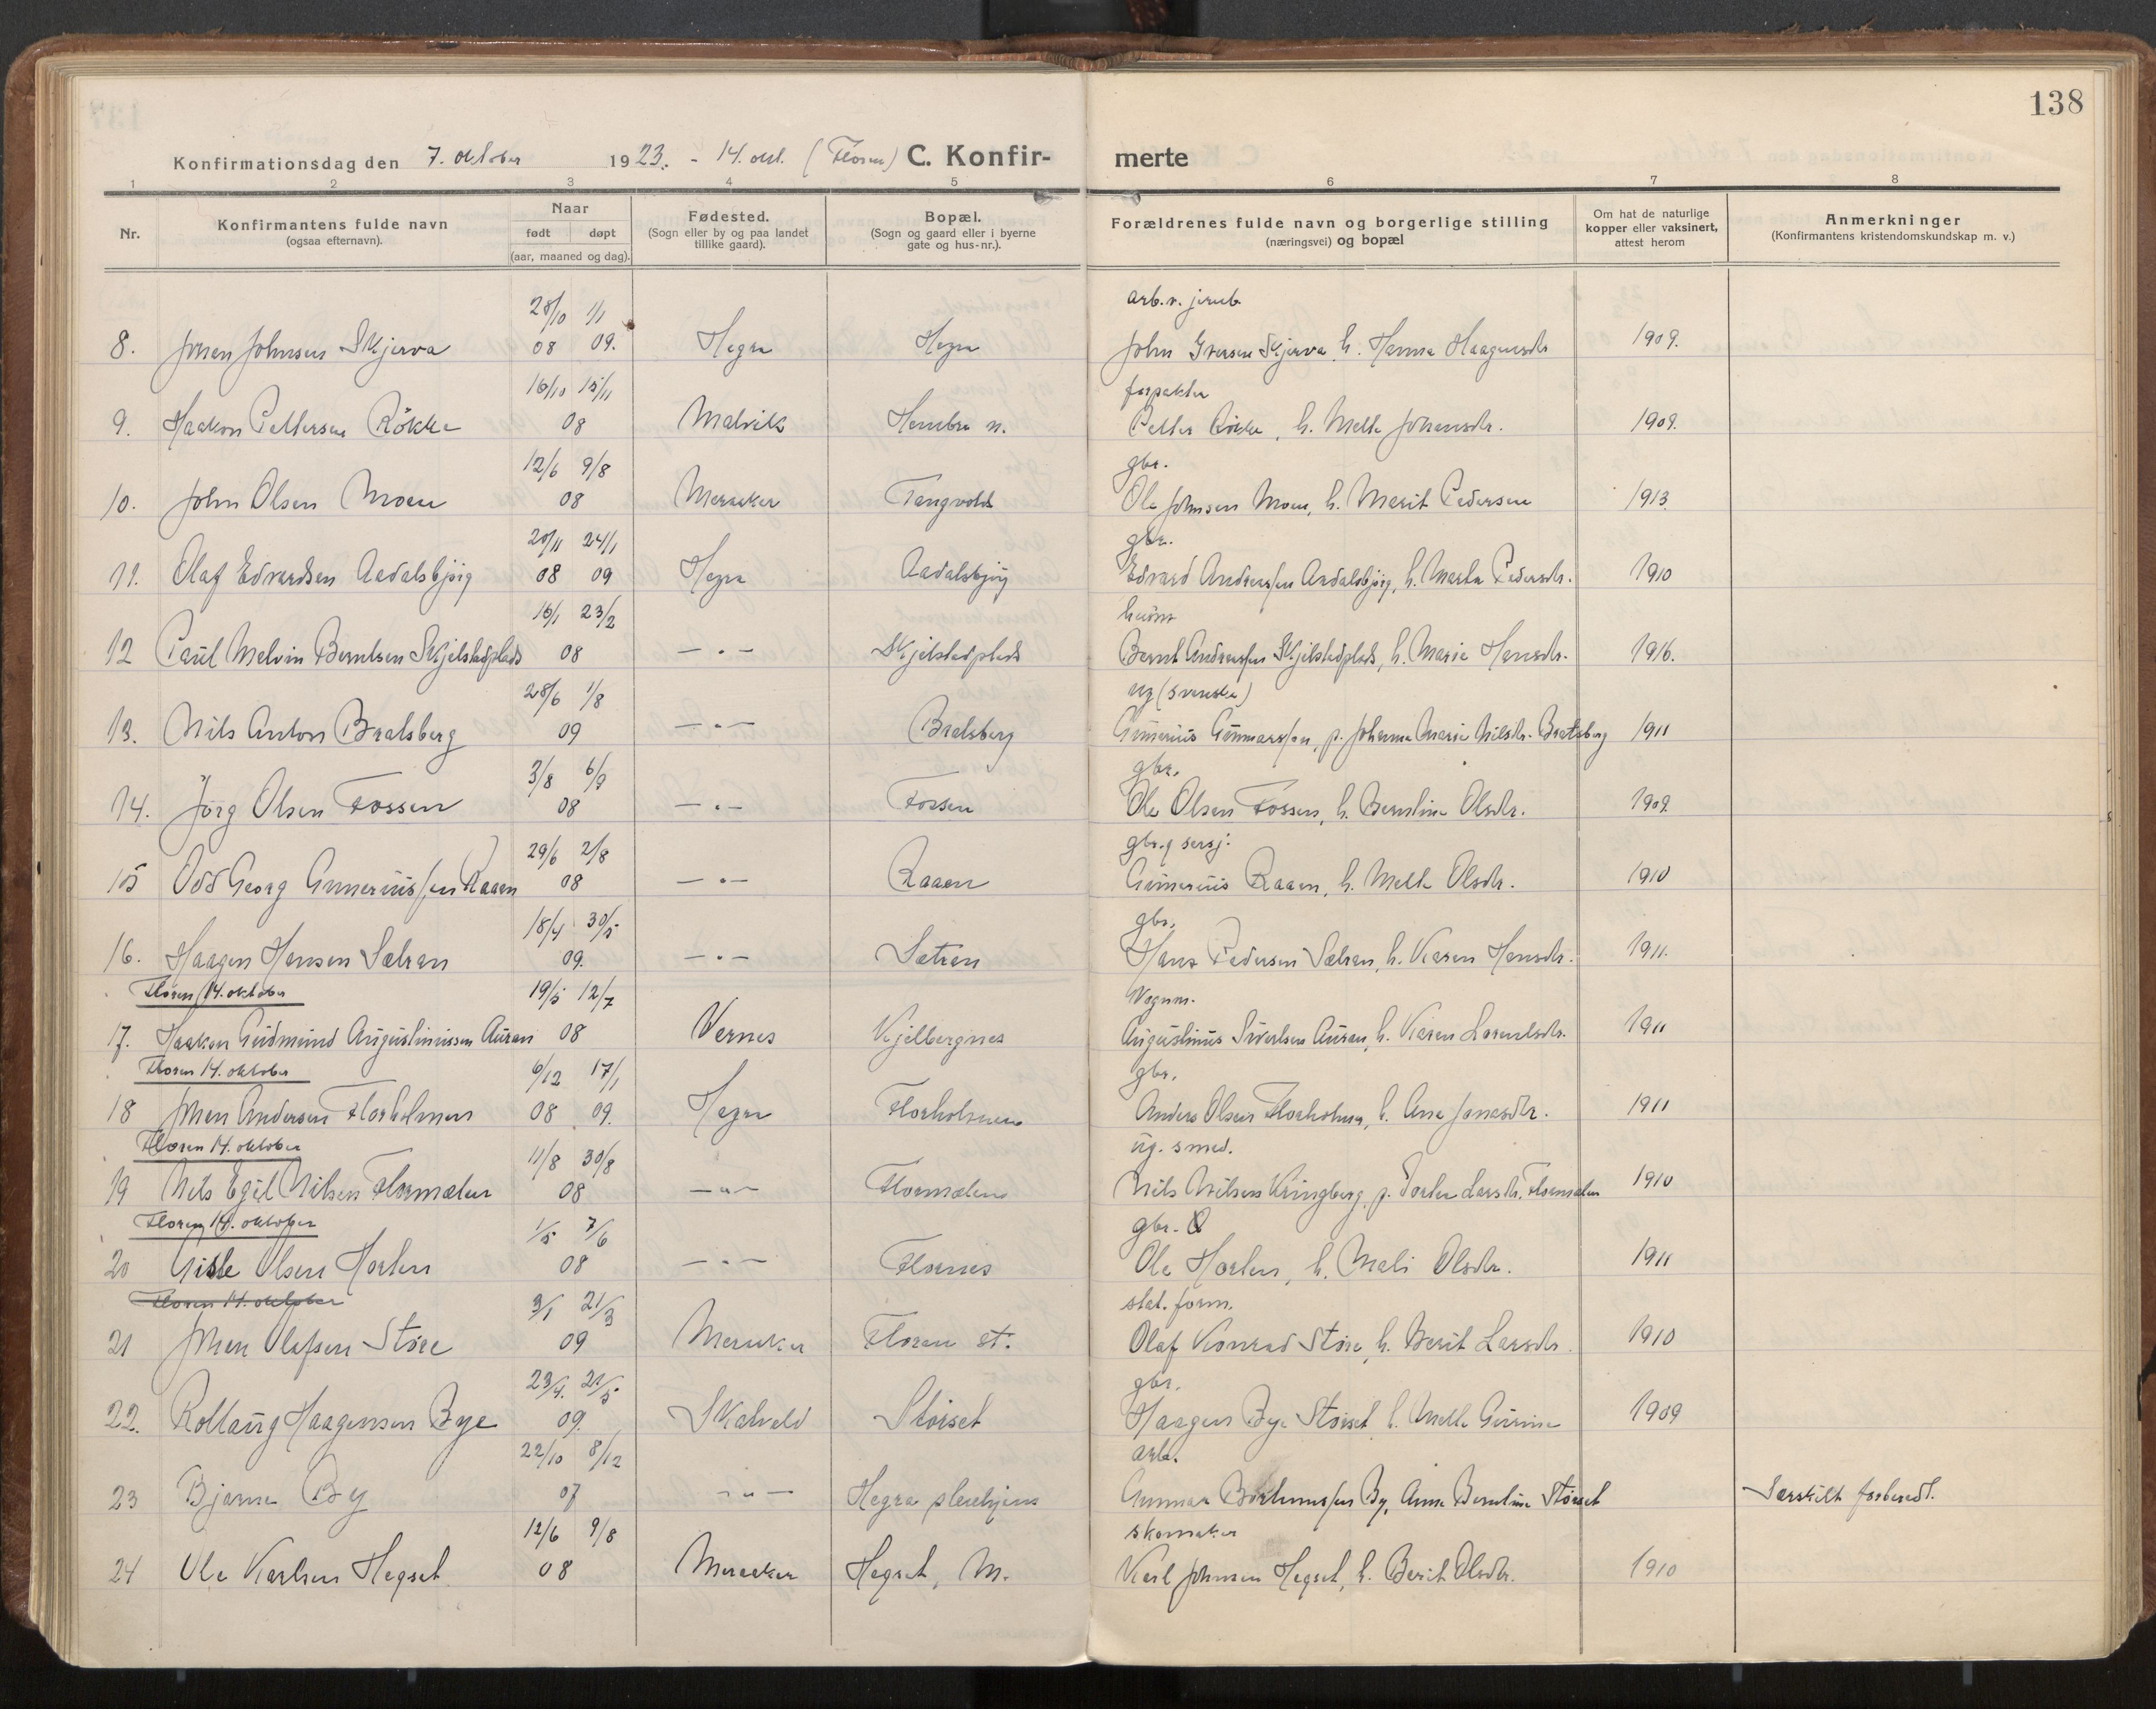 138
Konfirmationsdag den 7. oktober 1923. - 14. okt. (Floren) C. Konfir- merte
1 2 3 4 5 6 7 8
Nr.
Konfirmantens fulde navn
(ogsaa efternavn).
Naar
født døpt
(aar, maaned og dag).
Fødested.
(Sogn eller by og paa landet
tillike gaard).
Bopæl.
(Sogn og gaard eller i byerne
gate og hus-nr.).
Forældrenes fulde navn og borgerlige stilling
(næringsvei) og bopæl
Om hat de naturlige
kopper eller vaksinert,
attest herom
Anmerkninger
(Konfirmantens kristendomskundskap m. v.)
28/10 1/1 arb. v. jernb.
8. Johan Johnsen Skjerva 08 09. Hegra Hegra John Iversen Skjerva, h. Hanna Haagensdtr 1909.
16/10 15/11 forpakter
9. Haakon Pettersen Røkke 08 Malvik Hembre n. Petter Røkke, h. Mette Johansdtr. 1909.
12/6 9/8 gbr.
10. John Olsen Moen 08 Meraker Tangvold Ole Johnsen Moen, h. Marit Pedersen 1913.
20/11 24/1 gbr.
11. Olaf Edvardsen Aadalsbjørg 08 09 Hegra Aadalsbjørg Edvard Anderssen Aadalsbjørg, h. Marta Pedersdtr. 1910
16/1 23/2 husm
12 Paul Melvin Berntsen Skjelstadplads 08 — " — Skjelstadplads Bernt Andreassen Skjelstadplads, h. Marie Hansdtr. 1916.
28/6 1/8 ug (svenske)
13. Nils Anton Bratsberg 09 — " — Bratsberg Gunerius Gunnarssen, p. Johanna Marie Nilsdtr. Bratsberg 1911
3/8 6/9 gbr.
14. Jørg Olsen Fossen 08 — " — Fossen Ole Olsen Fossen, h. Berntine Olsdtr. 1909.
29/6 2/8 gbr. & sersj.
15 Odd Georg Gunerius/sen Raaen 08 — " — Raaen Gunerius Raaen, h. Mette Olsdtr. 1910
18/4 30/5 gbr.
16. Haagen Hansen Sætran 09. — " — Sætran Hans Pedersen Sætran, h. Karen Hansdtr. 1911.
Floren 14. oktober 19/5 12/7 Vognm.
17. Haakon Gudmund Augustinussen Auran 08 Vernes Kjelbergnes Augustinus Sivertsen Auran, h. Karen Lorentsdtr. 1911
Floren 14. oktober 6/12 17/1 gbr.
18 Johan Andersen Florholmen 08 09. Hegra Florholmen Anders Olsen Florholmen, h. Ane Jonasdtr. 1911
Floren 14. oktober 11/8 30/8 ug. smed.
19 Nils Egil Nilsen Flormælen 08 — " — Flormælen Nils Nilsen Kringberg, p. Larsdtr. Flormælen 1910
Floren 14. oktober 1/5 7/6 gbr.
20 Gisle Olsen Horten 08 — " — Flornes Ole Horten, h. Mali Olsdtr. 1911
Floren 14. oktober 3/1 21/3 stat. form.
21 Johan Olafsen Støre 09 Meraker Floren st. Olaf Konrad Støre, h. Berit Larsdtr. 1910
23/4. 21/5 gbr.
22. Rollaug Haagensen Bye 09. Skatvold Størset Haagen Bye Størset, h. Mette Gurine 1909
22/10 8/12 arb.
23 Bjarne By 07 — " — Hegra pleiehjem Gunnar By, Anna Berntine Størset Særskilt forberedt.
12/6 9/8 skomaker
24 Ole Karlsen Hegset 08 Meraker Hegset, M. Karl Johnsen Hegset, h. Berit Olsdtr. 1910